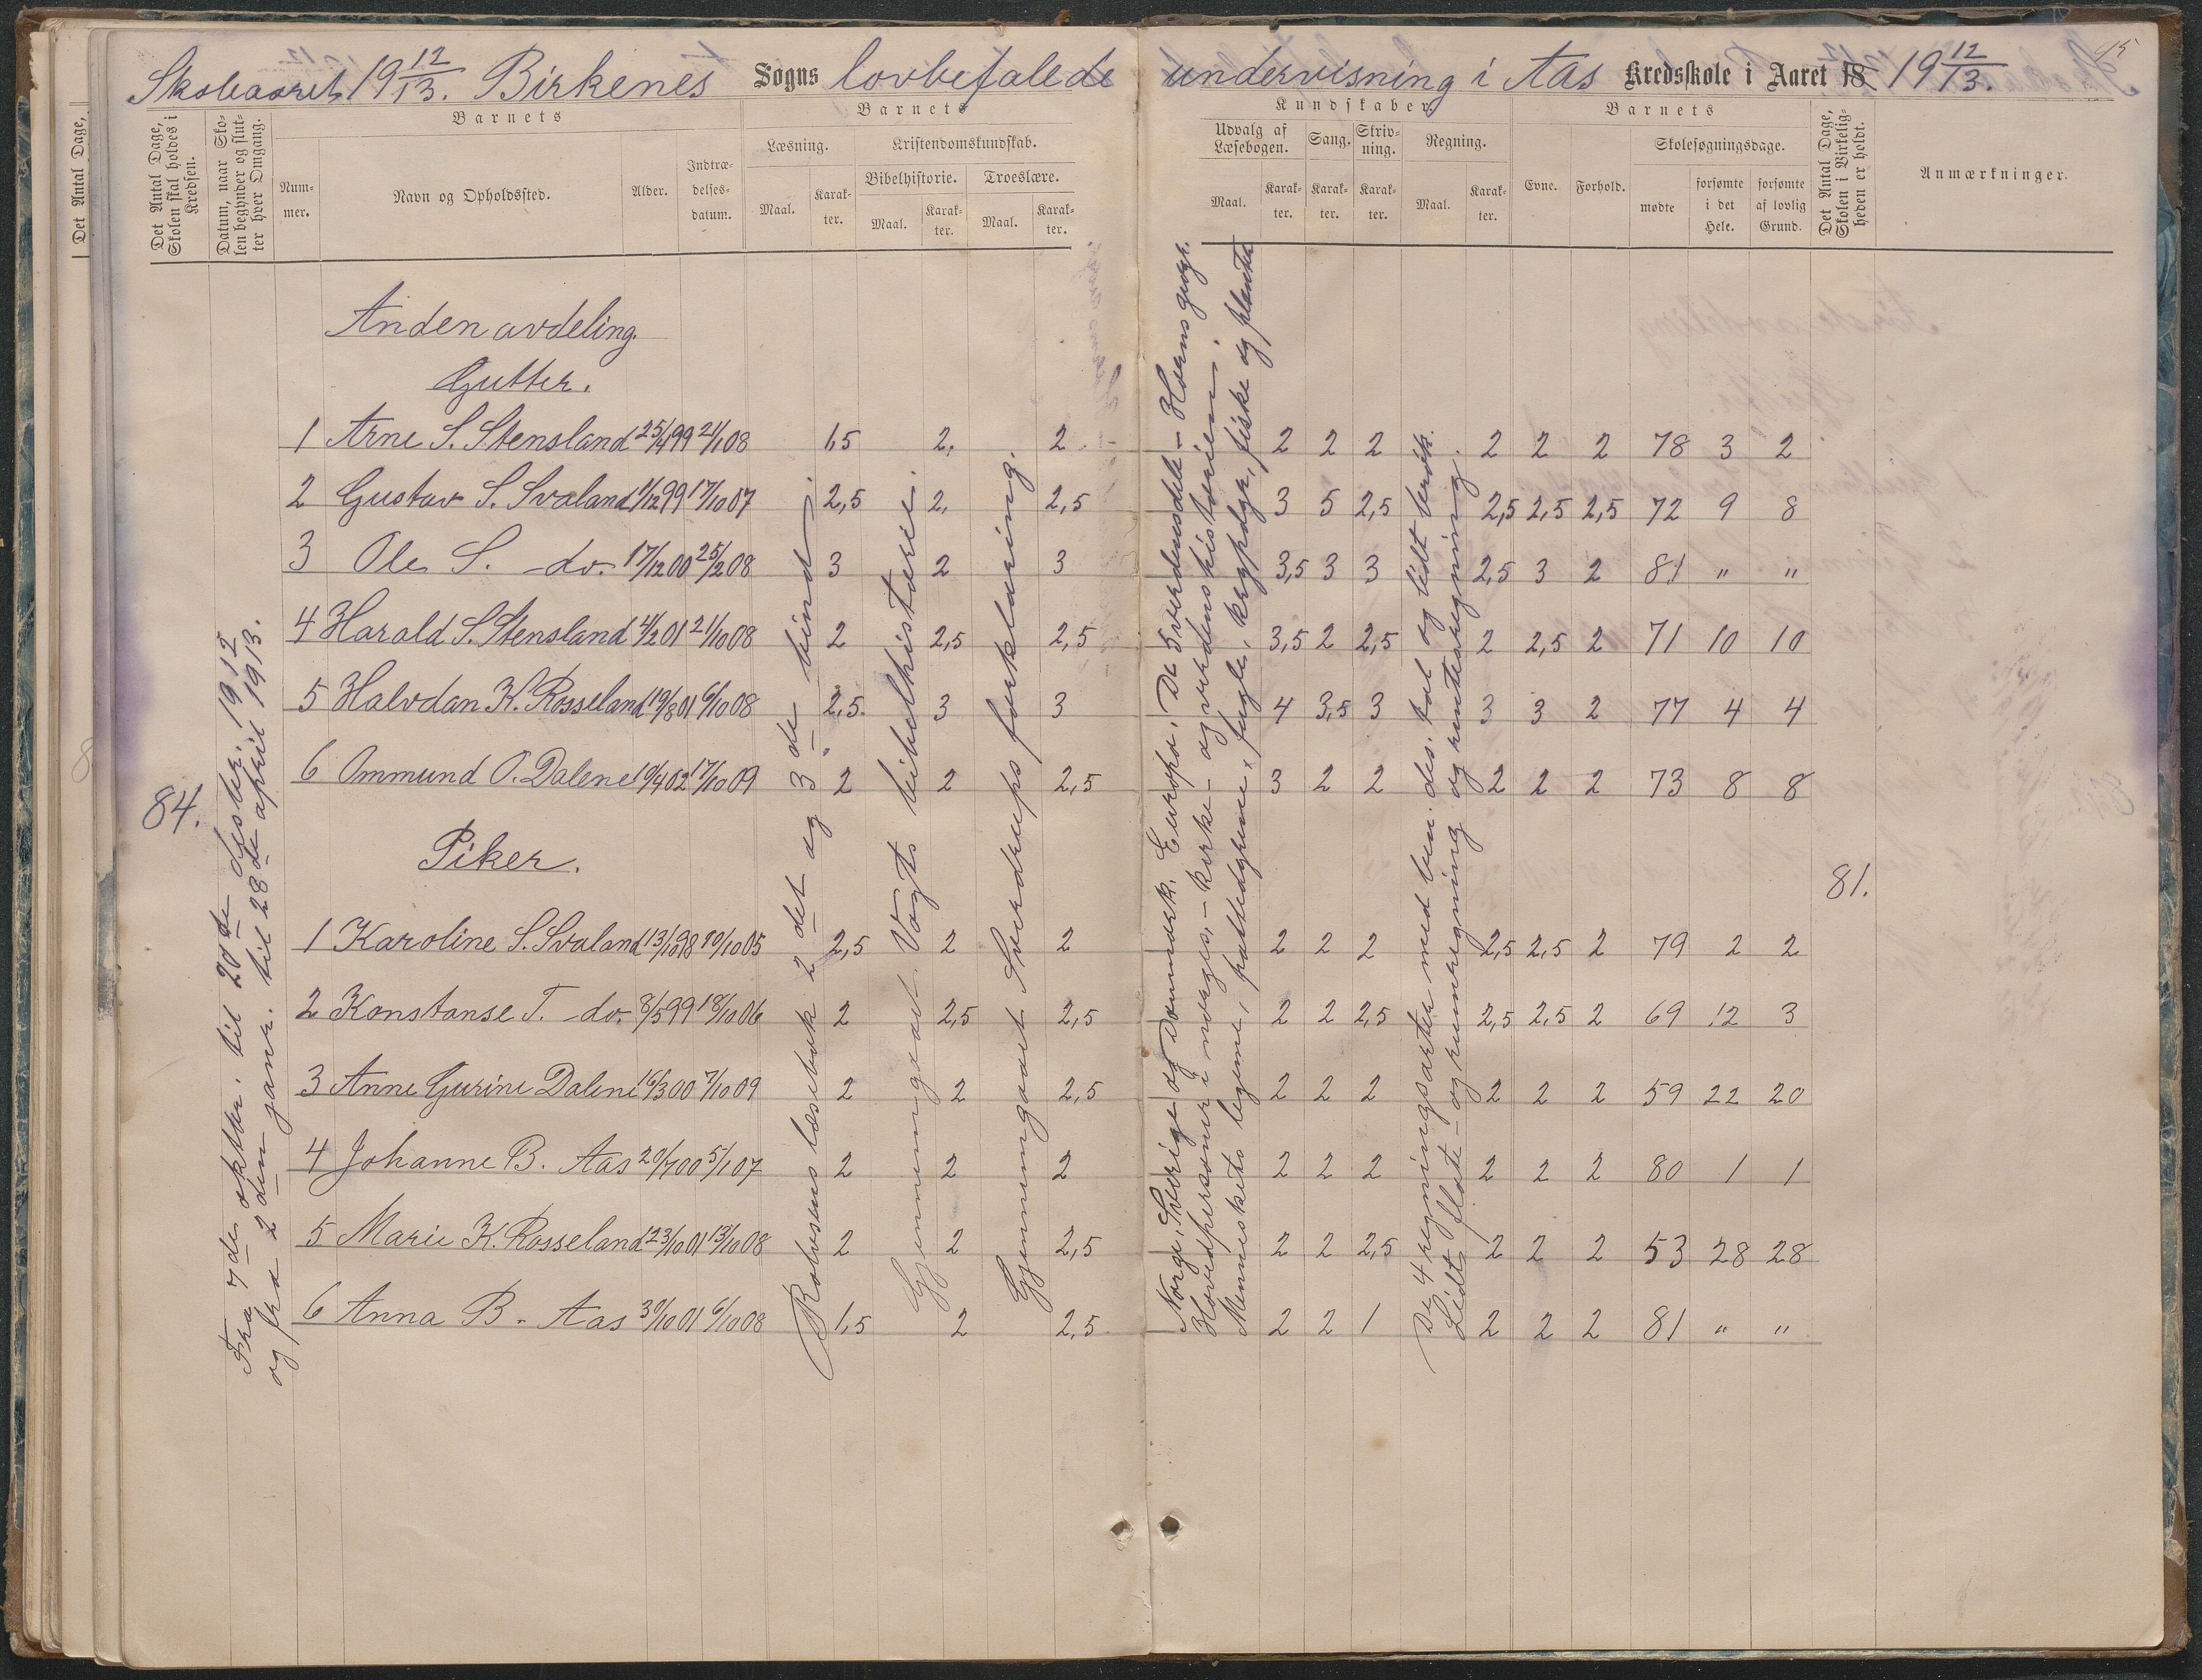 Skoleaaret 19 12/13. Birkenes Sogns lovbefalede undervisning i Aas Kredsskole i Aaret 18 19 12/13.
45
Det Antal Dage,
Det Antal Dage, Skolen skal holdes i Kredsen.
Datum, naar Skolen begynder og slutter hver Omgang.
Barnets
Nummer.
Navn og Opholdssted.
Alder.
Indtrædelsesdatum.
Barnets
Læsning.
Maal.
Karakter.
Kristendomskundskab.
Bibelhistorie.
Maal.
Karakter.
Troeslære.
Maal.
Karakter.
Kundskaber
Udvalg af Læsebogen.
Maal.
Karakter.
Sang.
Karakter.
Skrivning.
Karakter.
Regning.
Maal.
Karakter.
Barnets
Evne.
Forhold.
Skolesøgningsdage.
mødte
forsømte i det Hele.
forsømte af lovlig Grund.
Det Antal Dage, Skolen i Virkeligheden er holdt.
Anmærkninger.
84.
Fra 7de oktbr. til 20de desber. 1912
og fra 2den janr. til 28de april 1913.
Anden avdeling.
Gutter.
1 Arne S. Stensland 25/4 99 21/1 08 1,5 2. 2 2 2 2 2 2 2 78 3 2
2 Gustav S. Svaland 1/12 99 17/10 07 2,5 2, 2,5 3 5 2,5 2,5 2,5 2,5 72 9 8
3 Ole S. do. 17/12 00 25/2 08 3 2 3 3,5 3 3 2,5 3 2 81 " "
4 Harald S. Stensland 4/2 01 21/10 08 2 2,5 2,5 3,5 2 2,5 2 2,5 2 71 10 10
5 Halvdan K. Rosseland 19/8 01 6/10 08 2,5. 3 3 4 3,5 3 3 3 2 77 4 4
6 Ommund O. Dalene 10/4 02 17/10 09 2 2 2,5 3 2 2 2 2 2 73 8 8
Piker.
1 Karoline S. Svaland 13/10 98 10/10 05 2,5 2 2 2 2 2 2,5 2,5 2 79 2 2
2 Konstanse T. do. 8/5 99 18/10 06 2 2,5 2,5 2 2 2,5 2,5 2,5 2 69 12 3
3 Anne Gurine Dalene 16/3 00 7/10 09 2 2 2,5 2 2 2 2 2 2 59 22 20
4 Johanne B. Aas 20/7 00 5/1 07 2 2 2 2 2 2 2 2 2 80 1 1
5 Marie K. Rosseland 23/10 01 13/10 08 2 2 2,5 2 2 2,5 2 2 2 53 28 28
6 Anna B. Aas 30/10 01 6/10 08 1,5 2 2,5 2 2 1 2 2 2 81 " "
Rolvsens læsebok 2det og 3de bind.
Gjennemgaat Vogts bibelhistorie.
Gjennemgaaet Sverdrups forklaring.
Norge, Sverige og Danmark. Europa. De 5 verdensdele - Havens geogr.
Hovedpersoner i norges, - kirke- og verdenshistorien.
Menneskets legeme, pattedyrene, fugle, krypdyr, fiske og plante
De 4 regningsarter med ben. des. tal og lidt brøk.
Lidt flate- og rumregning og renteregning.
81.